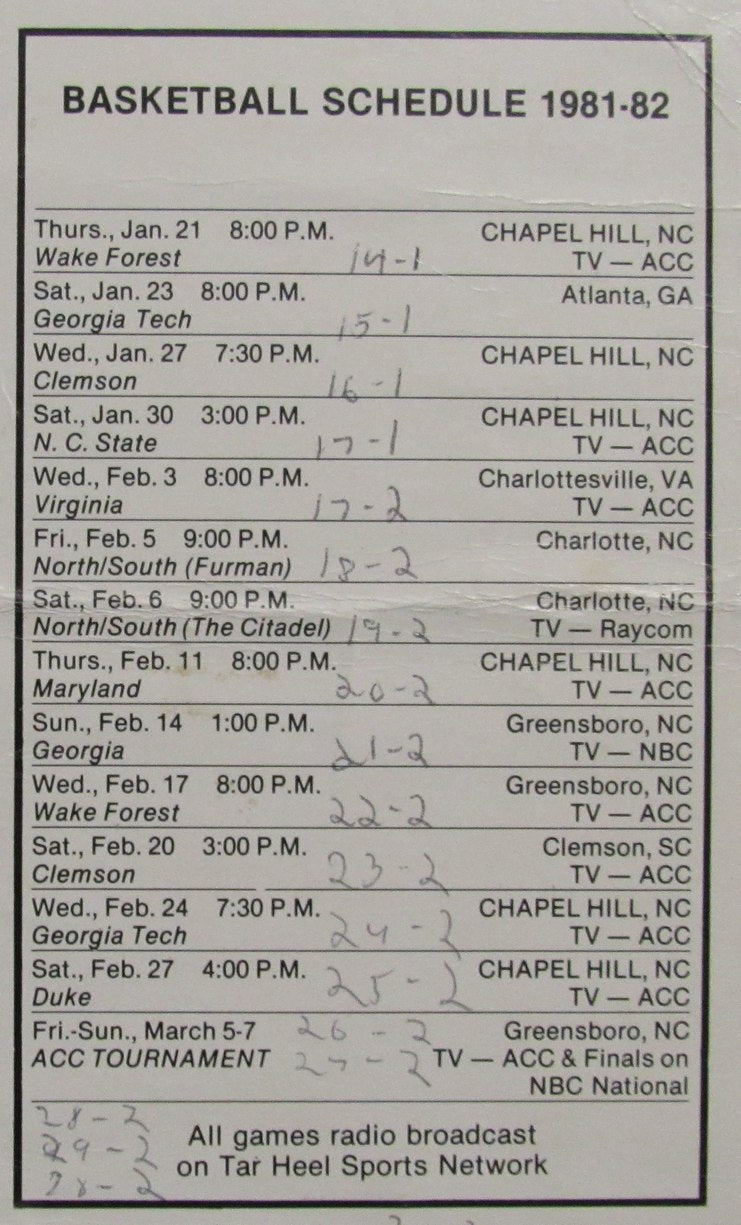 BASKETBALL SCHEDULE 1981-82
Thurs., Jan. 21 8:00 P.M. CHAPEL HILL, NC
Wake Forest 14-1 TV — ACC
Sat., Jan. 23 8:00 P.M. Atlanta, GA
Georgia Tech 15-1
Wed., Jan. 27 7:30 P.M. CHAPEL HILL, NC
Clemson 16-1
Sat., Jan. 30 3:00 P.M. CHAPEL HILL, NC
N. C. State 17-1 TV — ACC
Wed., Feb. 3 8:00 P.M. Charlottesville, VA
Virginia 17-2 TV — ACC
Fri., Feb. 5 9:00 P.M. Charlotte, NC
North/South (Furman) 18-2
Sat., Feb. 6 9:00 P.M. Charlotte, NC
North/South (The Citadel) 19-2 TV — Raycom
Thurs., Feb. 11 8:00 P.M. CHAPEL HILL, NC
Maryland 20-2 TV — ACC
Sun., Feb. 14 1:00 P.M. Greensboro, NC
Georgia 21-2 TV — NBC
Wed., Feb. 17 8:00 P.M. Greensboro, NC
Wake Forest 22-2 TV — ACC
Sat., Feb. 20 3:00 P.M. Clemson, SC
Clemson 23-2 TV — ACC
Wed., Feb. 24 7:30 P.M. CHAPEL HILL, NC
Georgia Tech 24-2 TV — ACC
Sat., Feb. 27 4:00 P.M. CHAPEL HILL, NC
Duke 25-2 TV — ACC
Fri.-Sun., March 5-7 26-2 Greensboro, NC
ACC TOURNAMENT 27-2 TV — ACC & Finals on
NBC National
28-2
29-2 All games radio broadcast
on Tar Heel Sports Network